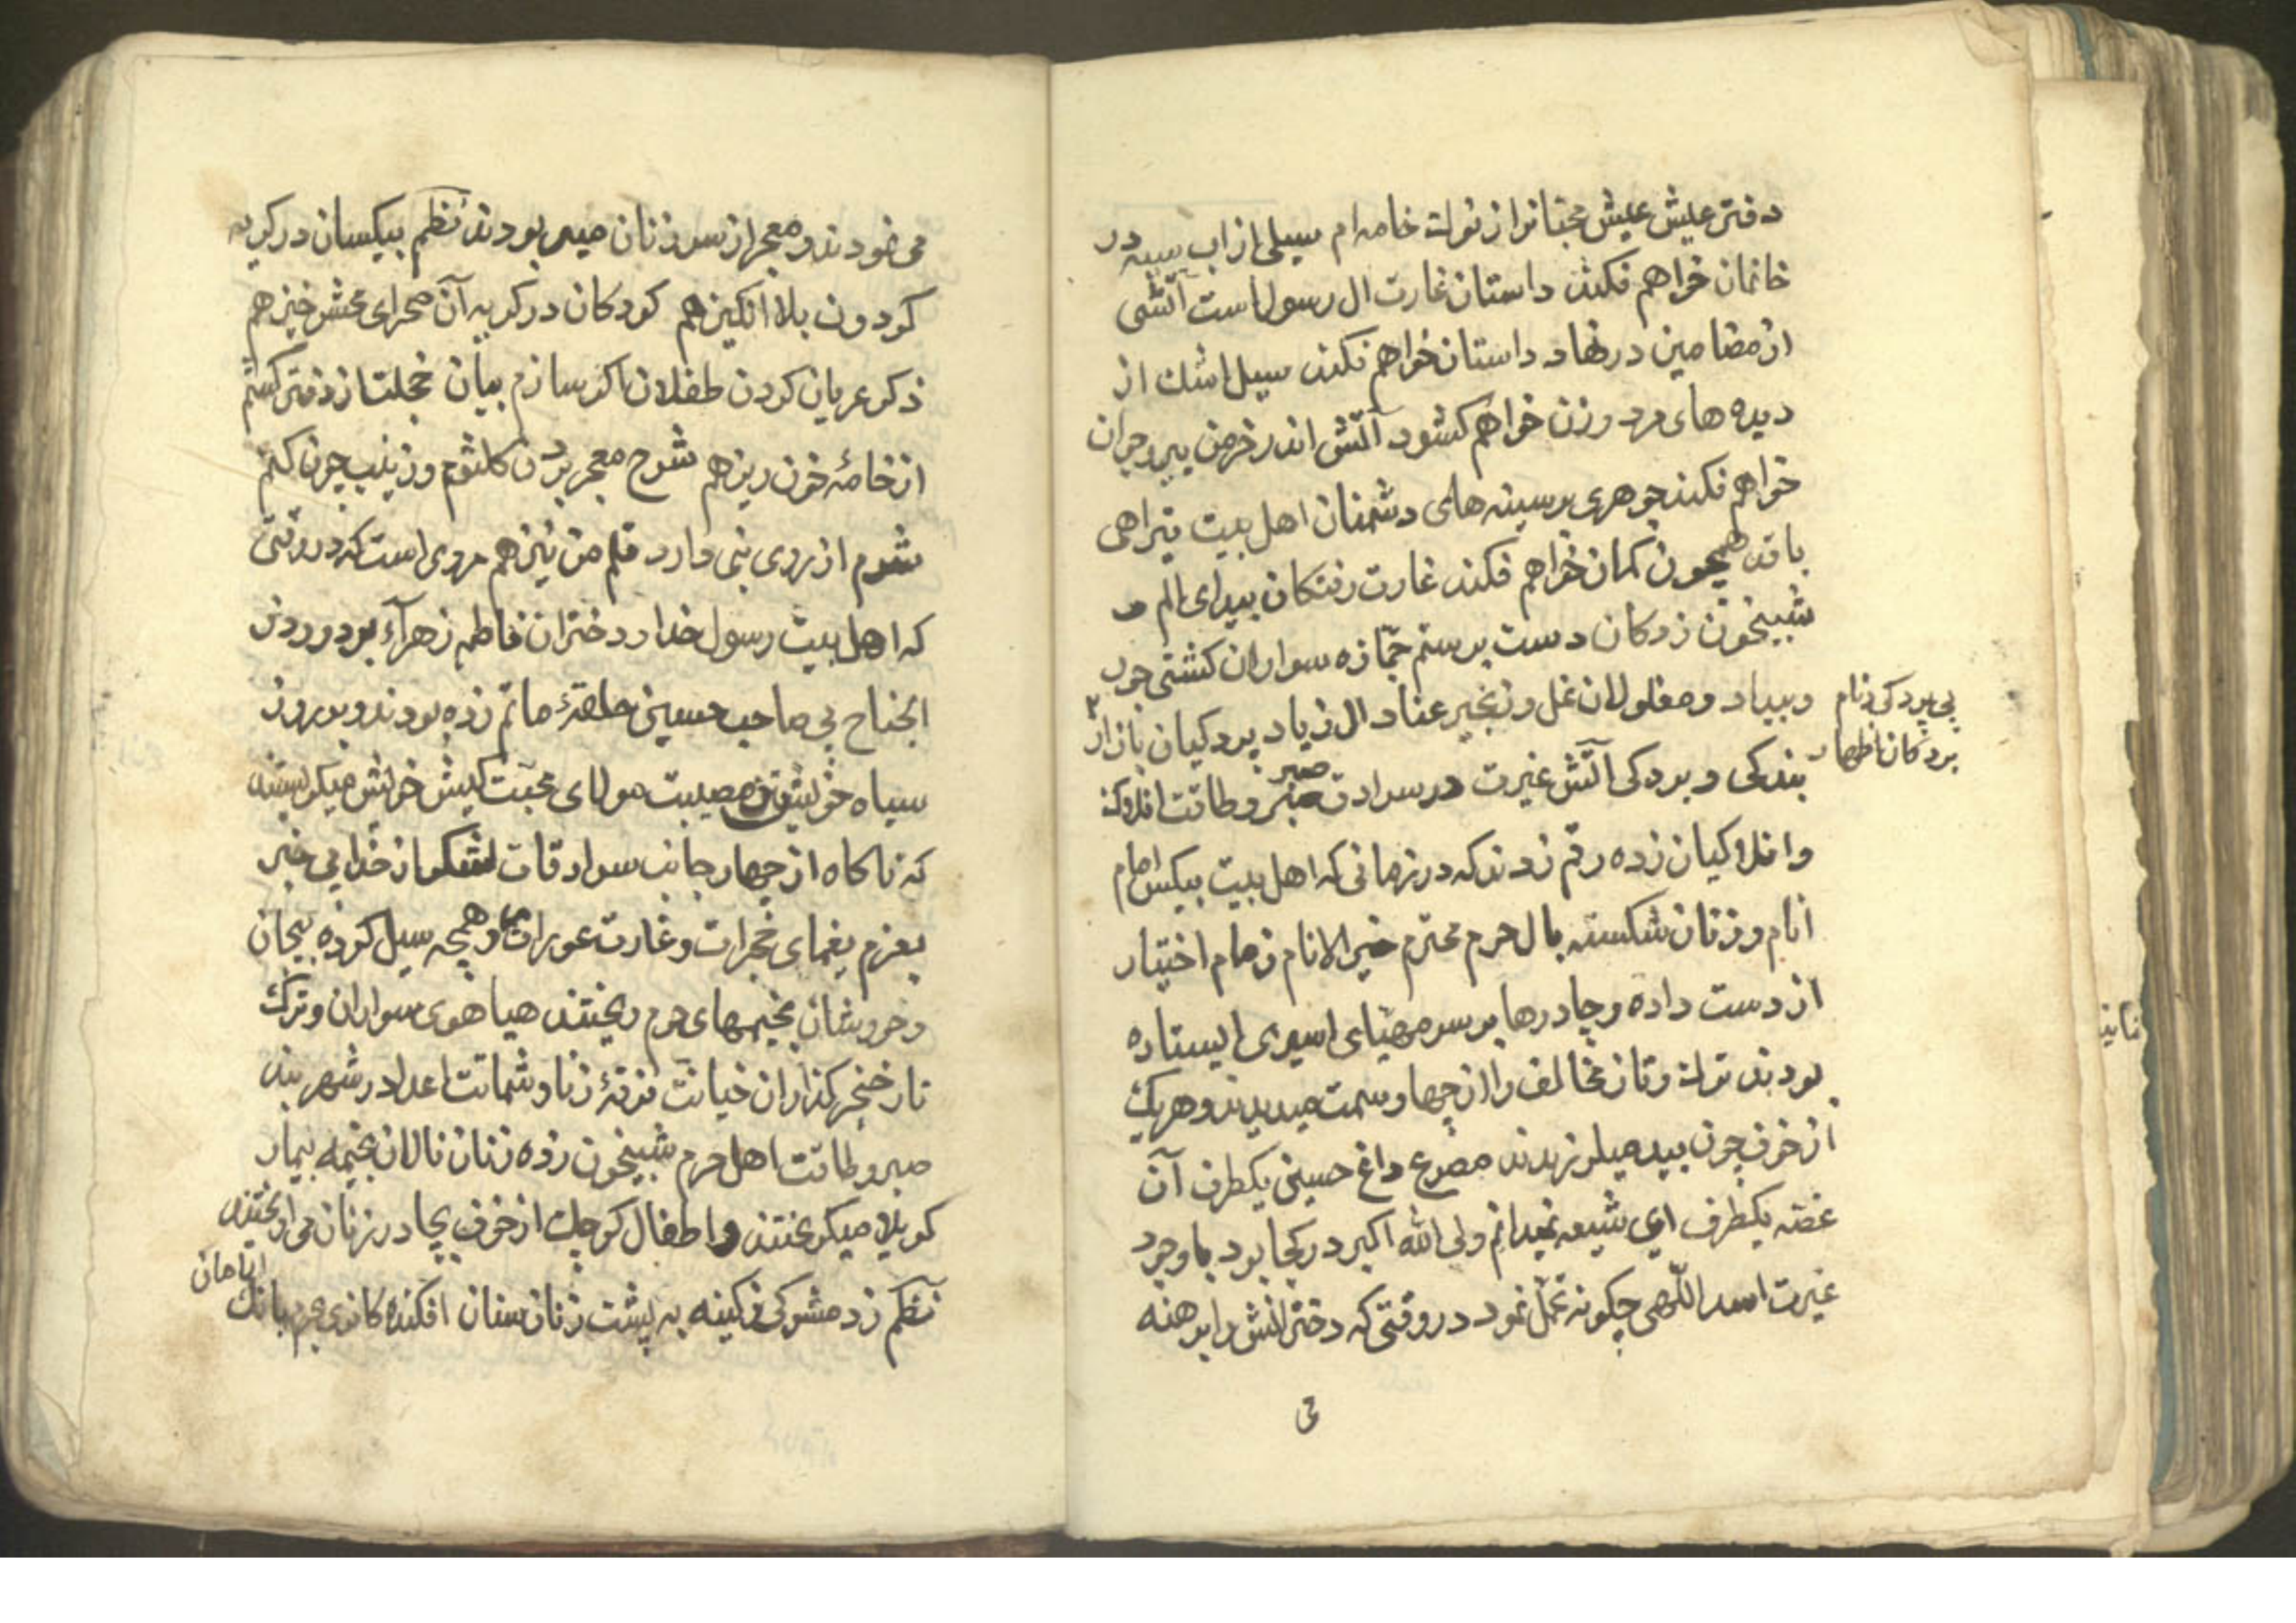 دفتر عیش عیش محبتانرا از نوک خامه ام سیلی از اب سیه در
خانمان خواهم فکند داستان غارت ال رسول است آتشی
از مضامین در نهاد داستان خواهم فکند سیل اشک از
دیده های مرد و زن خواهم کشود آتش اندر خرمن پیر و جوان
خواهم فکند جوهری بر سینه های دشمنان اهل بیت تیر اهی
باقد همچون کمان خواهم فکند غارت رفتکان بیدای الم و
شبیخون زدکان دست برستم جمّازه سواران کشتی جور
وبیداد و مغلولان غل و زنجیر عناد ال زیاد پردکیان بازار
بی پردکی و نام
بردکان ناظهار
بندکی و بردکی آتش غیرت در سرادق صبر و طاقت افلاک
صبر
وافلاکیان زده رقم زدند که در زمانی که اهل بیت بیکس امام
انام و زنان شکسته بال حرم محترم خیر الانام زمام اختیار
از دست داده و چادرها بر سر مهیّای اسیری ایستاده
بودند ترک وتاز مخالف را از چهار سمت میدیدند و هریک
از خوف چون بید میلرزیدند مصرع داغ حسینی یکطرف آن
غصّه یکطرف ای شیعه نمیدانم ولی الله اکبر در کجا بود با وجود
غیرت اسد اللّهی چکونه تحمّل نمود در وقتی که دخترانش را برهنه
می
می نمودند و معجر از سر زنان میربودند نظم بیکسان در کریه
کردون بلا انکیز هم کودکان در کریه آن صحرای محشر خیز هم
ذکر عریان کردن طفلان اکر سازم بیان خجلت از دفتر کشم
از خامهٔ خون ریز هم شرح معجر بردن کلثوم و زینب چون کنم
شرم از روی نبی دارد قلم من نیز هم مروی است که در وقتی
که اهل بیت رسول خدا و دختران فاطمه زهرآء بر دور ذو
الجناح بی صاحب حسینی حلقهٔ ماتم زده بودند و بر روز
سیاه خویش و مصیبت مولای محبّت کیش خویش میکریستند
که ناکاه از چهار جانب سرادقات لشکر از خدا بی خبر
بعزم یغمای حجرات و غارت عورات همچه سیل کرده بیجان
و خروشان بخیمهای حرم ریختند هیاهوی سواران و ترک
تاز خنجر کذاران خیانت فرقهٔ زنا و شماتت اعدا در شهر بند
صبر و طاقت اهل حرم شبیخون زده زنان نالان بخیمه بیمار
کربلا میکریختند و اطفال کوچک از خوف بچادر زنان می اویختند
نظم زد مشرکی ز کینه به پشت زنان سنان افکنده کافری بحرم بانک
الامان